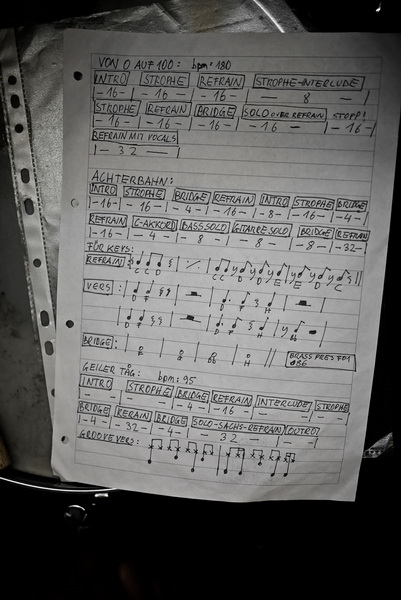 VON 0 AUF 100: bpm=180
INTRO STROPHE REFRAIN STROPHE-INTERLUDE
-16- -16- -16- 8
STROPHE REFRAIN BRIDGE SOLO OVER REFRAIN STOPP!
-16- -16- -16- -16- -16-
REFRAIN MIT VOCALS
-32-
ACHTERBAHN:
INTRO STROPHE BRIDGE REFRAIN INTRO STROPHE BRIDGE
-16- -16- -4- -16- -8- -16- -4-
REFRAIN C-AKKORD BASS SOLO GITARRE SOLO BRIDGE REFRAIN
-16- -4- -8- -8- -8- -32-
FÜR KEYS:
REFRAIN C C D C C D D E E D C
VERS: D F D F H
D F D F H Bb
BRIDGE: BRASS
GEILER TAG: bpm: 95
INTRO STROPHE BRIDGE REFRAIN INTERLUDE STROPHE
-4- -16-
BRIDGE REFRAIN BRIDGE SOLO-SACHS-REFRAIN OUTRO
-4- -32- -4- -32-
GROOVE VERS: